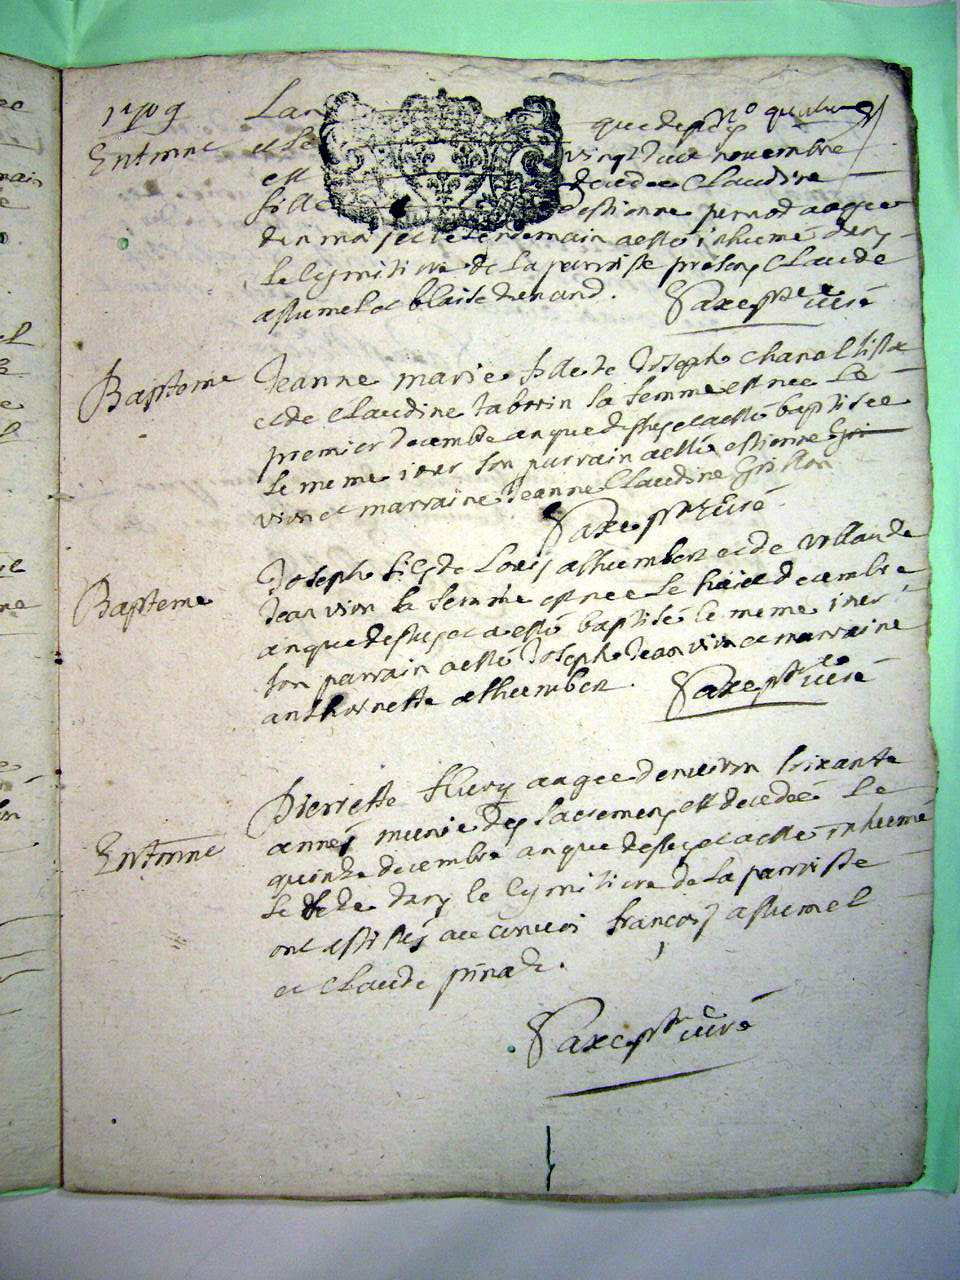 1709
Lan que dess N° quatur
Enterrne et le vingt deux novembre
est decedee Claudine
fille destienne pernod aagee
dun mois et le lendemain a esté inhumé dans
le Cymitiere de la parroisse presens Claude
athumel et blaise durand. Saxe ptre curé
Bapteme Jeanne marie fille de Joseph chanal
et de Claudine tabvrin sa femme est nee le
premier decembre an que dessus et a esté baptisee
le meme iour son parrain a esté estienne Gri
vion et marraine Jeanne Claudine
Saxe ptre Curé
Bapteme Joseph fils de Louis athumbert et de
Jean vion sa femme est nee le huict decembre
an que dessus et a esté baptisé le meme iour
son parrain a esté Joseph Jean vion et marraine
anthoinette athumbert. Saxe ptre curé
Pierrette flury aagee denviron soixante
Enterrne annes munie des sacremens est decedeé le
quinze decembre an que dessus et a esté inhumé
le dans le Cymitiere de la parroisse
ont assistés au convoi francois athumel
et Claude pinad.
Saxe ptre curé